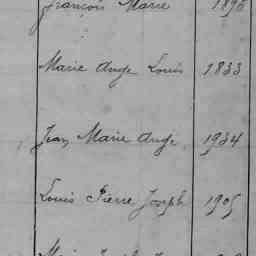 François Marie 1896
Marie Ange Louis 1833
Jean Marie Ange 1934
Louis Pierre Joseph 1905